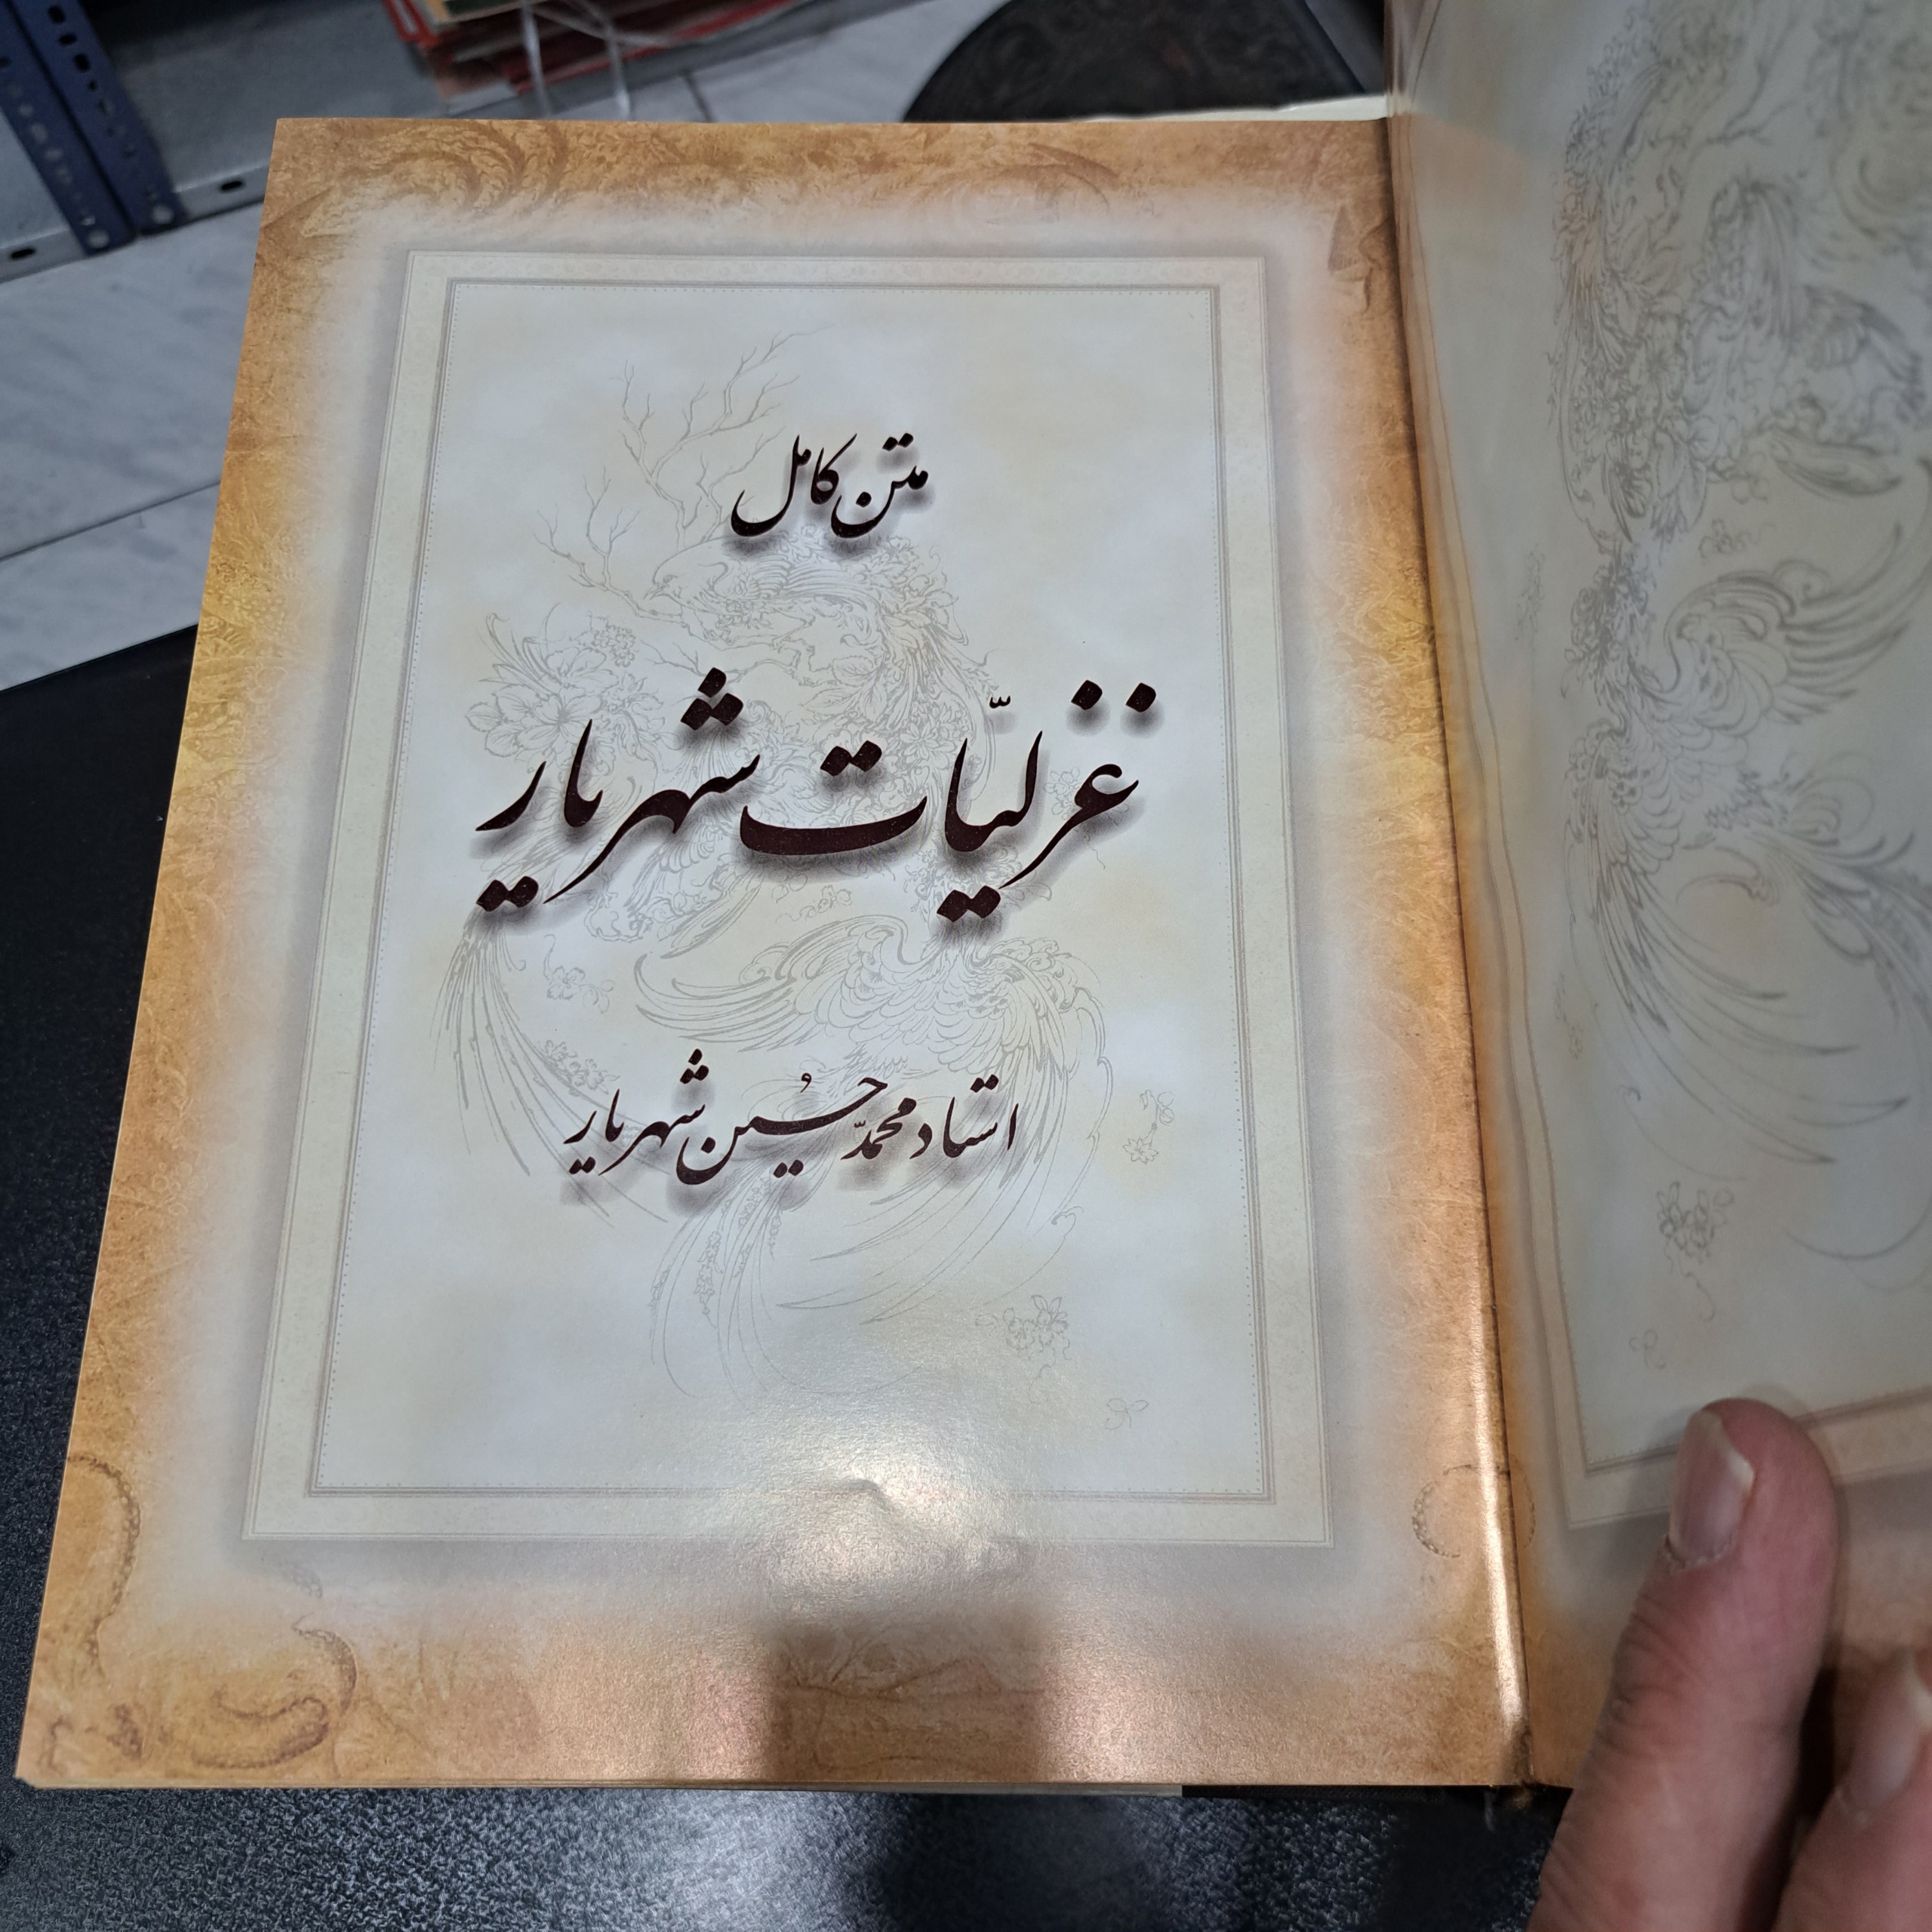 متن کامل
غزلیّات شهریار
استاد محمّد حُسین شهریار